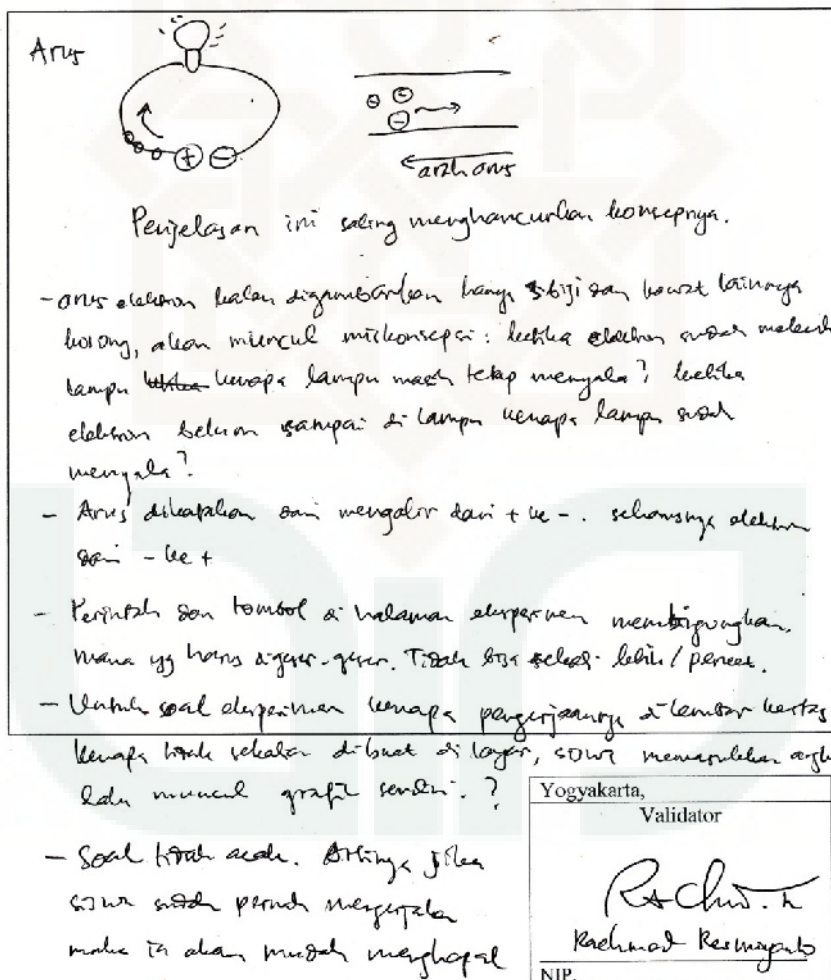 Arus
+ -
- -
-
arah arus
Penjelasan ini saling menghancurkan konsepnya.
- arus elektron kalau digambarkan hanya 3 biji dan kawat lainnya
kosong, akan muncul miskonsepsi: ketika elektron sudah melewati
lampu kenapa lampu masih tetap menyala? ketika
elektron belum sampai di lampu kenapa lampu sudah
menyala?
- Arus dikatakan mengalir dari + ke -. seharusnya elektron
dari - ke +
- Perintah dan tombol di halaman eksperimen membingungkan.
mana yg harus digeser-geser. Tidak bisa lebih /
- Untuk soal eksperimen kenapa pengerjaannya di lembar kertas
kenapa tidak sekalian dibuat di layar, siswa memasukkan angka
lalu muncul grafik sendiri.?
- Soal tidak acak. Artinya jika
siswa sudah pernah mengerjakan
maka ia akan mudah menghapal
Yogyakarta,
Validator
Rachmad Resmiyanto
NIP.